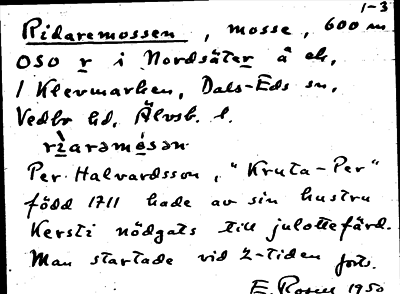 1-3
Ridaremossen, mosse, 600 m
OSO r i Nordsäter å ek,
1 Klevmarken, Dals-Eds sn,
Vedbo hd, Älvsb. l.
Per Halvardsson, "Kruta-Per"
född 1711 hade av sin hustru
Kersti nödgats till julottefärd.
Man startade vid 2-tiden forts.
E. Rosell 1950